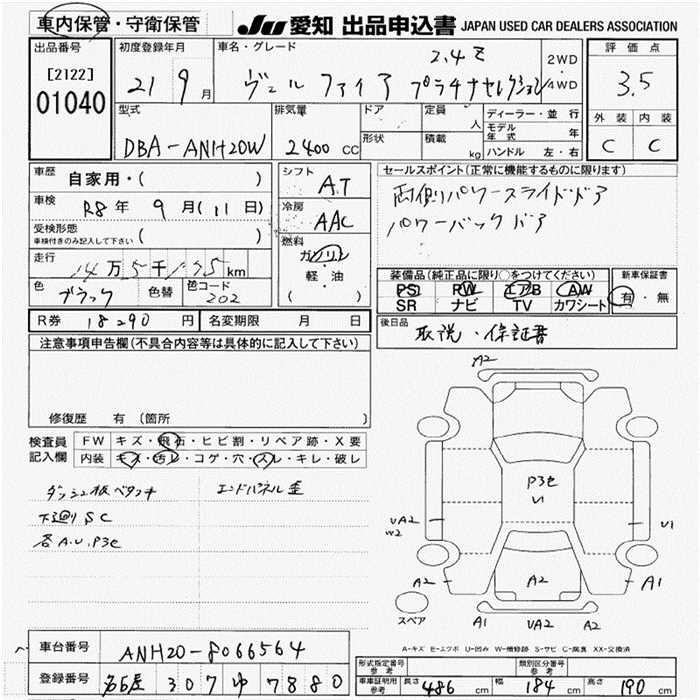 車内保管・守衛保管
JU 愛知 出品申込書 JAPAN USED CAR DEALERS ASSOCIATION
出品番号 [2122] 01040
初度登録年月 21 9月
車名・グレード 2.4Z
ヴェルファイア プラチナセレクション
2WD・4WD
評価点 3.5
外装 内装
C C
型式 DBA-ANH20W
排気量 2400 CC
ドア
形状
定員 人
積載 kg
ディーラー・並行
モデル年式 年
ハンドル 左・右
車歴 自家用・( )
車検 R8年 9月(11日)
受検形態
車検付きのみ記入して下さい ( )
走行 14万5千 km
色 ブラック 色替 色コード 202
シフト AT
冷房 AAC
燃料 ガソリン
軽・油
( )
セールスポイント(正常に機能するものに限ります)
両側パワースライドドア
パワーバックドア
装備品(純正品に限り○をつけてください)
PS PW エアB AW
SR ナビ TV カワシート
新車保証書
有・無
R券 18290 円 名変期限 月 日
後日品 取説・保証書
注意事項申告欄(不具合内容等は具体的に記入して下さい)
修復歴 有(箇所 )
検査員記入欄
FW キズ・飛石・ヒビ割・リペア跡・X要
内装 キズ・汚レ・コゲ・穴・スレ・キレ・破レ
ダッシュ板ベタつき エンドパネル歪
下廻りSC
各A.U.P3色
A2
P3色
U1
UA2
W2
U1
A2 A2 A1
スペア A1 UA2 A2
A-キズ E-エクボ U-凹み W-補修跡 S-サビ C-腐食 XX-交換済
車台番号 ANH20-8066564
登録番号 名古屋 307 ゆ 7880
形式指定番号 参考
類別区分番号 参考
車庫証明用 参考 長さ 486 cm 幅 184 cm 高さ 190 cm